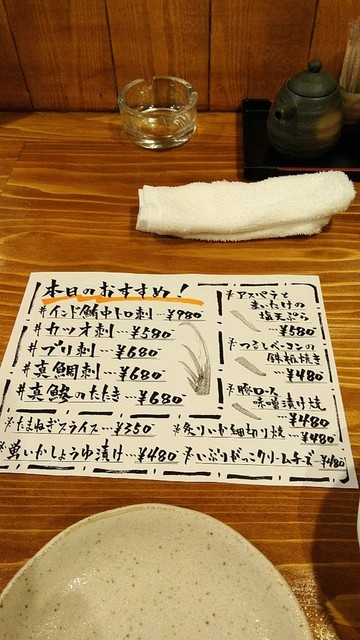 本日のおすすめ!
#インド鮪中トロ刺…¥980
#カツオ刺…¥580
#ブリ刺…¥680
#真鯛刺…¥680
#真鯵のたたき…¥680
#アスパラと
まいたけの
塩天ぷら
…¥580
#つくしベーコンの
鉄板焼き
…¥480
#豚ロース
味噌漬け焼
…¥480
#たまねぎスライス…¥350
#炙りいか細切り焼…¥480
#蛍いかしょうゆ漬け…¥480
#いぶりがっこクリームチーズ…¥480